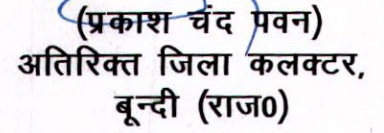 (प्रकाश चंद पवन)
अतिरिक्त जिला कलक्टर,
बून्दी (राज0)